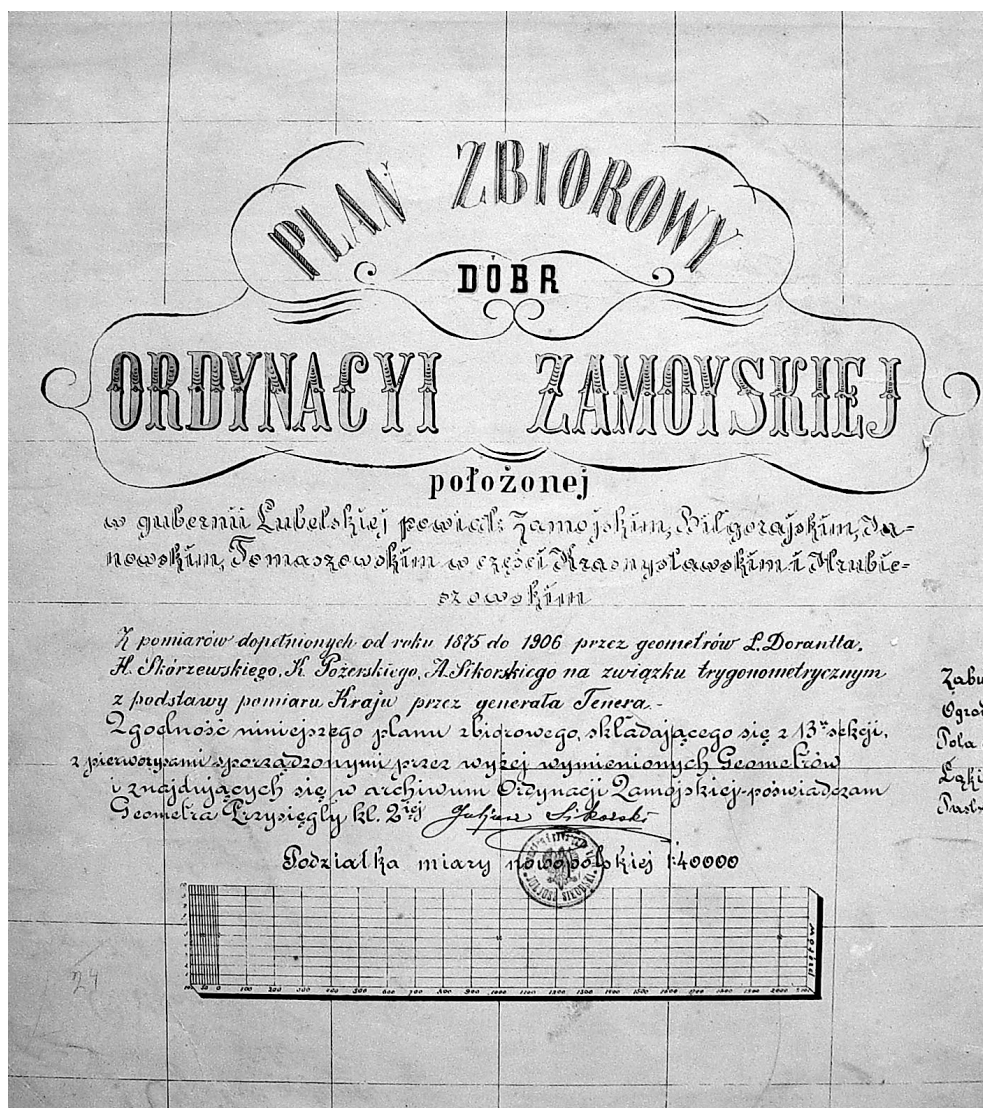 PLAN ZBIOROWY
DÓBR
ORDYNACYI ZAMOYSKIEJ
położonej
w gubernii Lubelskiej powiat: Zamojskim, Biłgorajskim, Ja-
nowskim, Tomaszowskim w części Krasnystawskim i Hrubie-
szowskim
Z pomiarów dopełnionych od roku 1875 do 1906 przez geometrów L. Dorantta,
H. Skórzewskiego, K. Pożerskiego, A. Sikorskiego na związku trygonometrycznym
z podstawy pomiaru Kraju przez generała Tenera.-
Zgodność niniejszego planu zbiorowego, składającego się z 13tu sekcji,
z pierworysami sporządzonymi przez wyżej wymienionych Geometrów
i znajdujących się w archiwum Ordynacji Zamojskiej-poświadczam
Geometra Przysięgły kl. 2iej Juljusz Sikorski
Podziałka miary nowopolskiej 1:40000
JULJUSZ SIKORSKI
100 50 0 100 200 300 400 500 600 700 800 900 1000 1100 1200 1300 1400 1500 1600 1700 1800 1900 2000 2100
Zabu
Ogrod
Pola
Łąki
Past